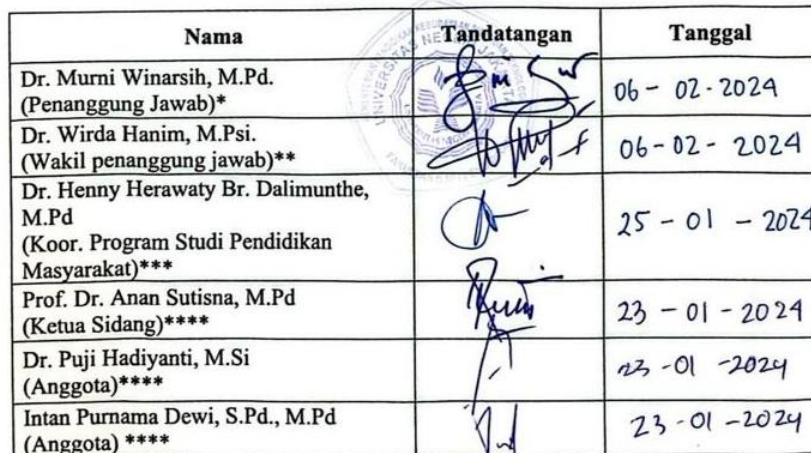 Nama Tandatangan Tanggal
Dr. Murni Winarsih, M.Pd.
(Penanggung Jawab)*
06 - 02 - 2024
Dr. Wirda Hanim, M.Psi.
(Wakil penanggung jawab)**
06 - 02 - 2024
Dr. Henny Herawaty Br. Dalimunthe,
M.Pd
(Koor. Program Studi Pendidikan
Masyarakat)***
25 - 01 - 2024
Prof. Dr. Anan Sutisna, M.Pd
(Ketua Sidang)****
23 - 01 - 2024
Dr. Puji Hadiyanti, M.Si
(Anggota)****
23 - 01 - 2024
Intan Purnama Dewi, S.Pd., M.Pd
(Anggota) ****
23 - 01 - 2024